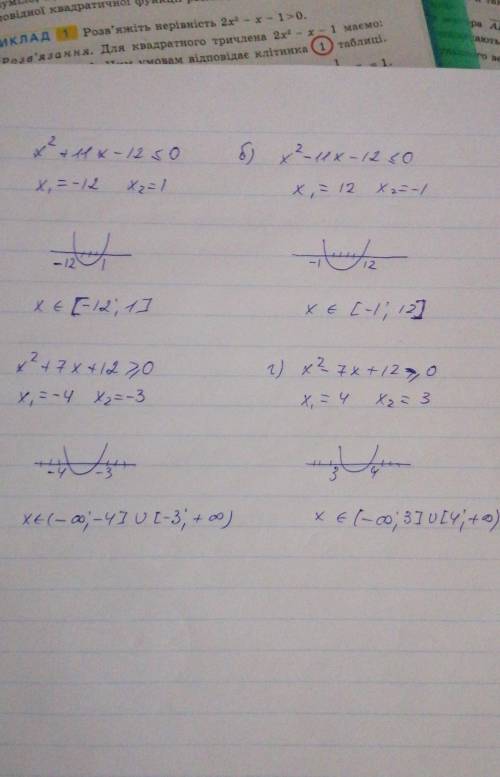 овідної квадратичної функції
ИКЛАД 1 Розв'яжіть нерівність 2x² – x – 1 > 0.
Розв'язання. Для квадратного тричлена 2x² – x – 1 маємо:
умовам відповідає клітинка 1 таблиці.
x² + 11x - 12 ≤ 0
x₁ = -12 x₂ = 1
-12 1
x ∈ [-12; 1]
б) x² - 11x - 12 ≤ 0
x₁ = 12 x₂ = -1
-1 12
x ∈ [-1; 12]
x² + 7x + 12 ≥ 0
x₁ = -4 x₂ = -3
-4 -3
x ∈ (-∞; -4] ∪ [-3; +∞)
г) x² - 7x + 12 ≥ 0
x₁ = 4 x₂ = 3
3 4
x ∈ [-∞; 3] ∪ [4; +∞)